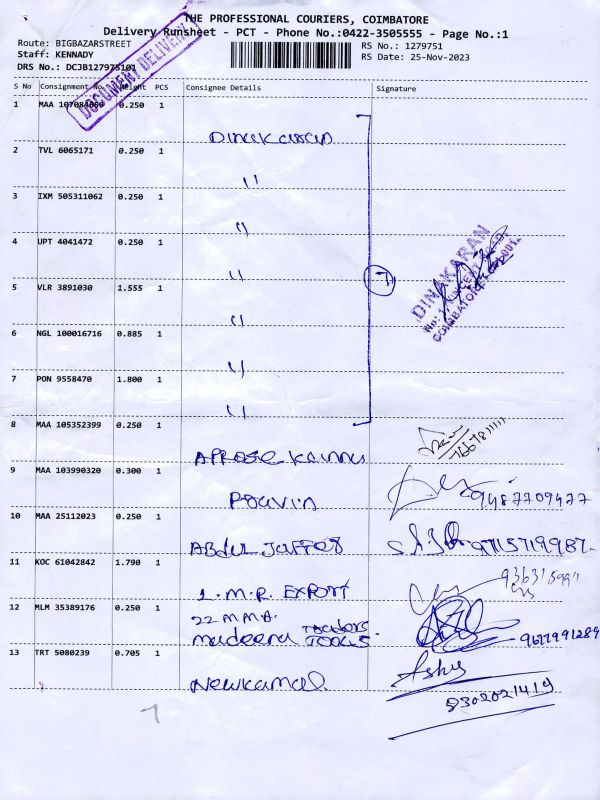 THE PROFESSIONAL COURIERS, COIMBATORE
Delivery Runsheet - PCT - Phone No.:0422-3505555 - Page No.:1
Route: BIGBAZARSTREET
RS No.: 1279751
Staff: KENNADY
RS Date: 25-Nov-2023
DRS No.: DCJB127975101
DOCUMENT DELIVERY
S No Consignment No Weight PCS Consignee Details Signature
1 MAA 107084060 0.250 1
Dinakaran
2 TVL 6065171 0.250 1
"
3 IXM 505311062 0.250 1
"
4 UPT 4041472 0.250 1
"
5 VLR 3891030 1.555 1
"
6 NGL 100016716 0.885 1
"
7 PON 9558470 1.800 1
"
7
DINAKARAN
8 MAA 105352399 0.250 1
9 MAA 103990320 0.300 1
Pravin 9487709477
10 MAA 25112023 0.250 1
Abdul Jaffer 9715719987
11 KOC 61042842 1.790 1
1. M.R. EXPORT
12 MLM 35389176 0.250 1
22 MMA.
madeena Tools 9677991289
13 TRT 5080239 0.705 1
Newkamal. Ashy
8302021419
7